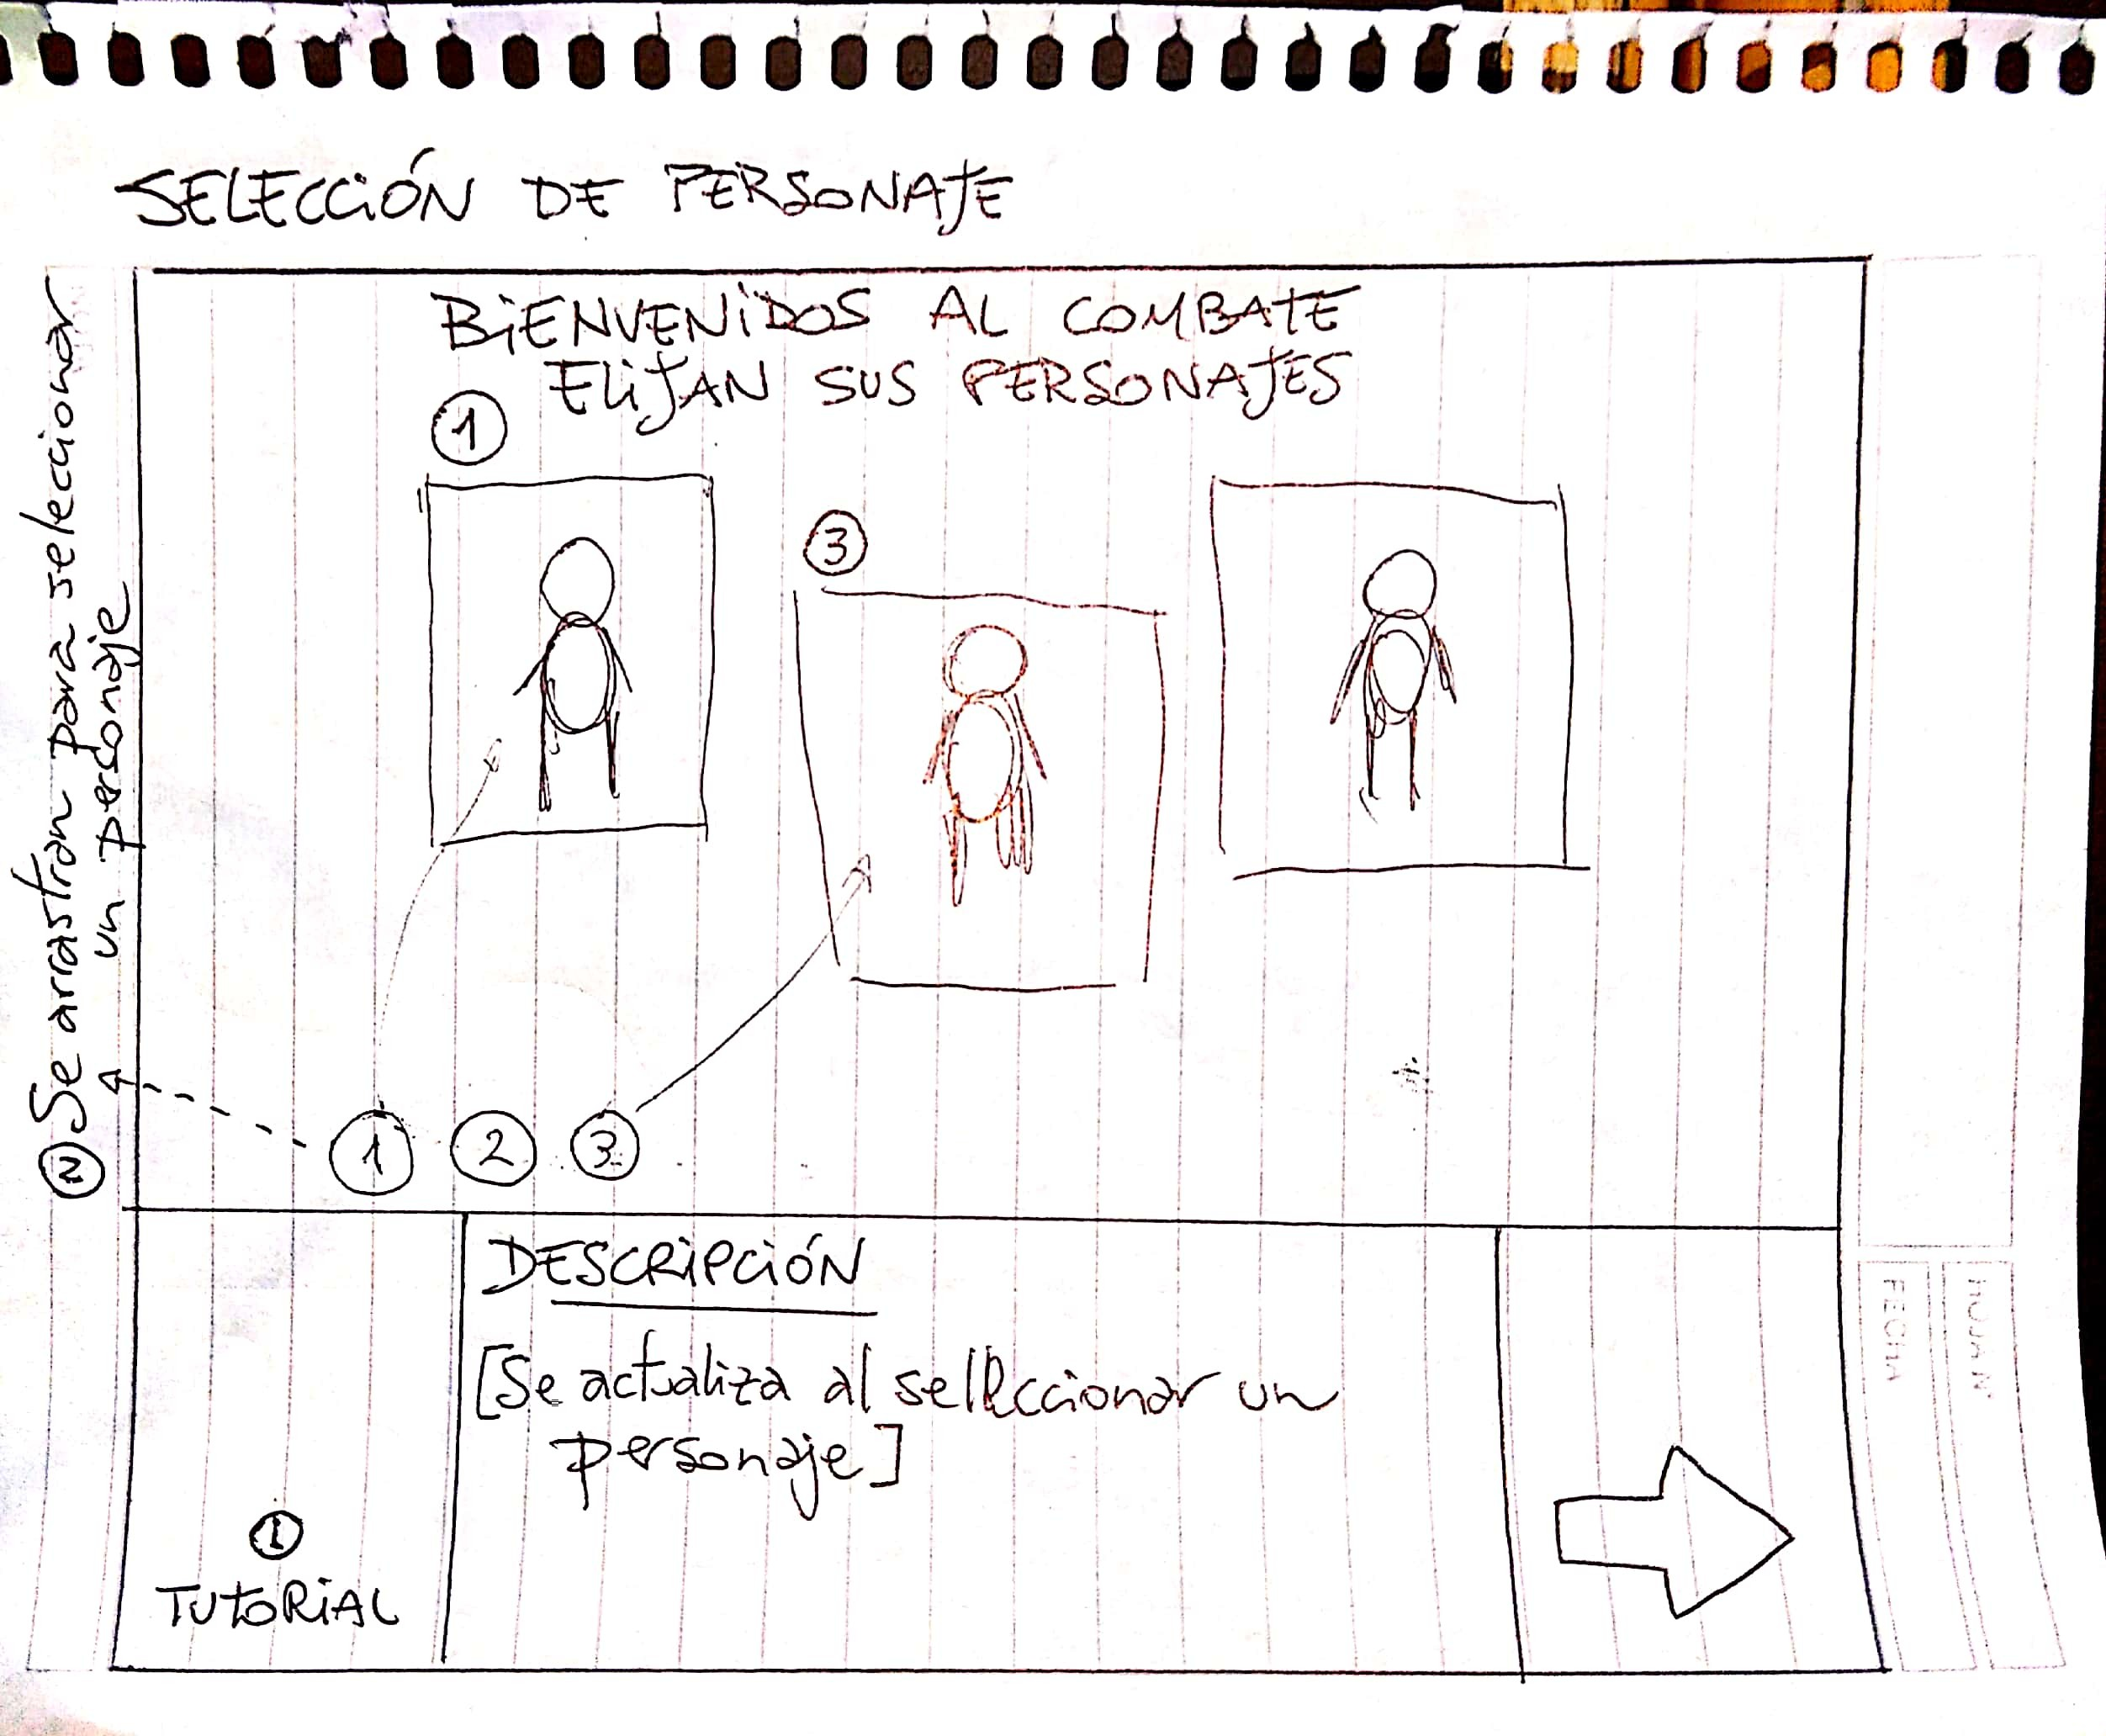 SELECCIÓN DE PERSONAJE
BIENVENIDOS AL COMBATE
ELIJAN SUS PERSONAJES
1
3
N Se arrastran para seleccionar
un personaje
1 2 3
DESCRIPCIÓN
[Se actualiza al seleccionar un
personaje]
I
TUTORIAL
FECHA
HOJA Nº